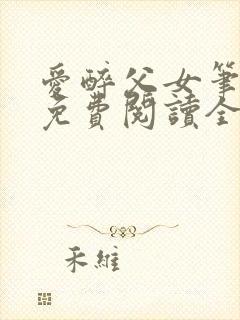 愛醉父女筆
免費閱讀全
禾維